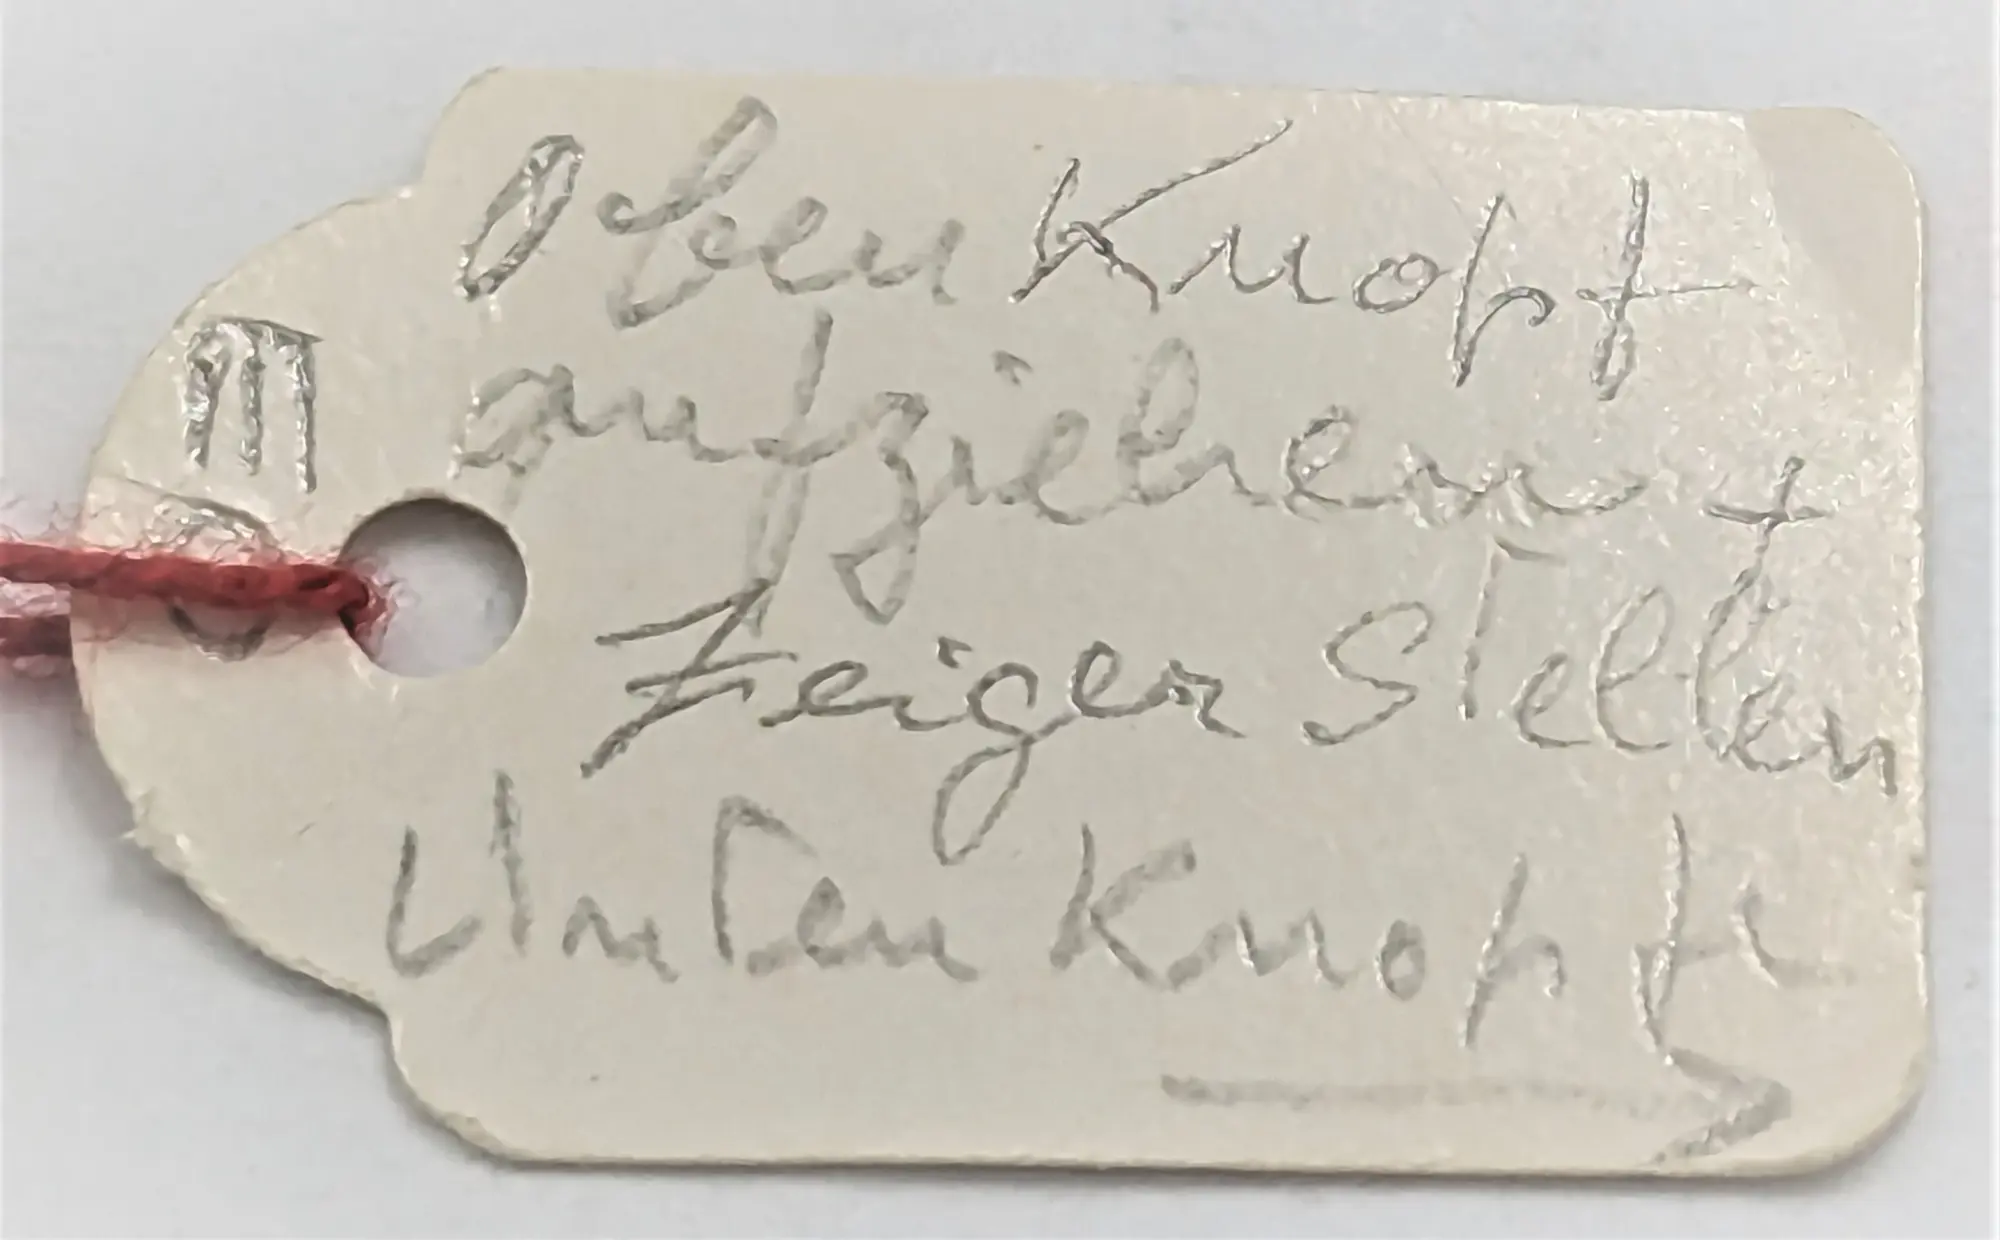 Oben Knopf
aufziehen +
Zeiger Stellen
Unten Knopf
→